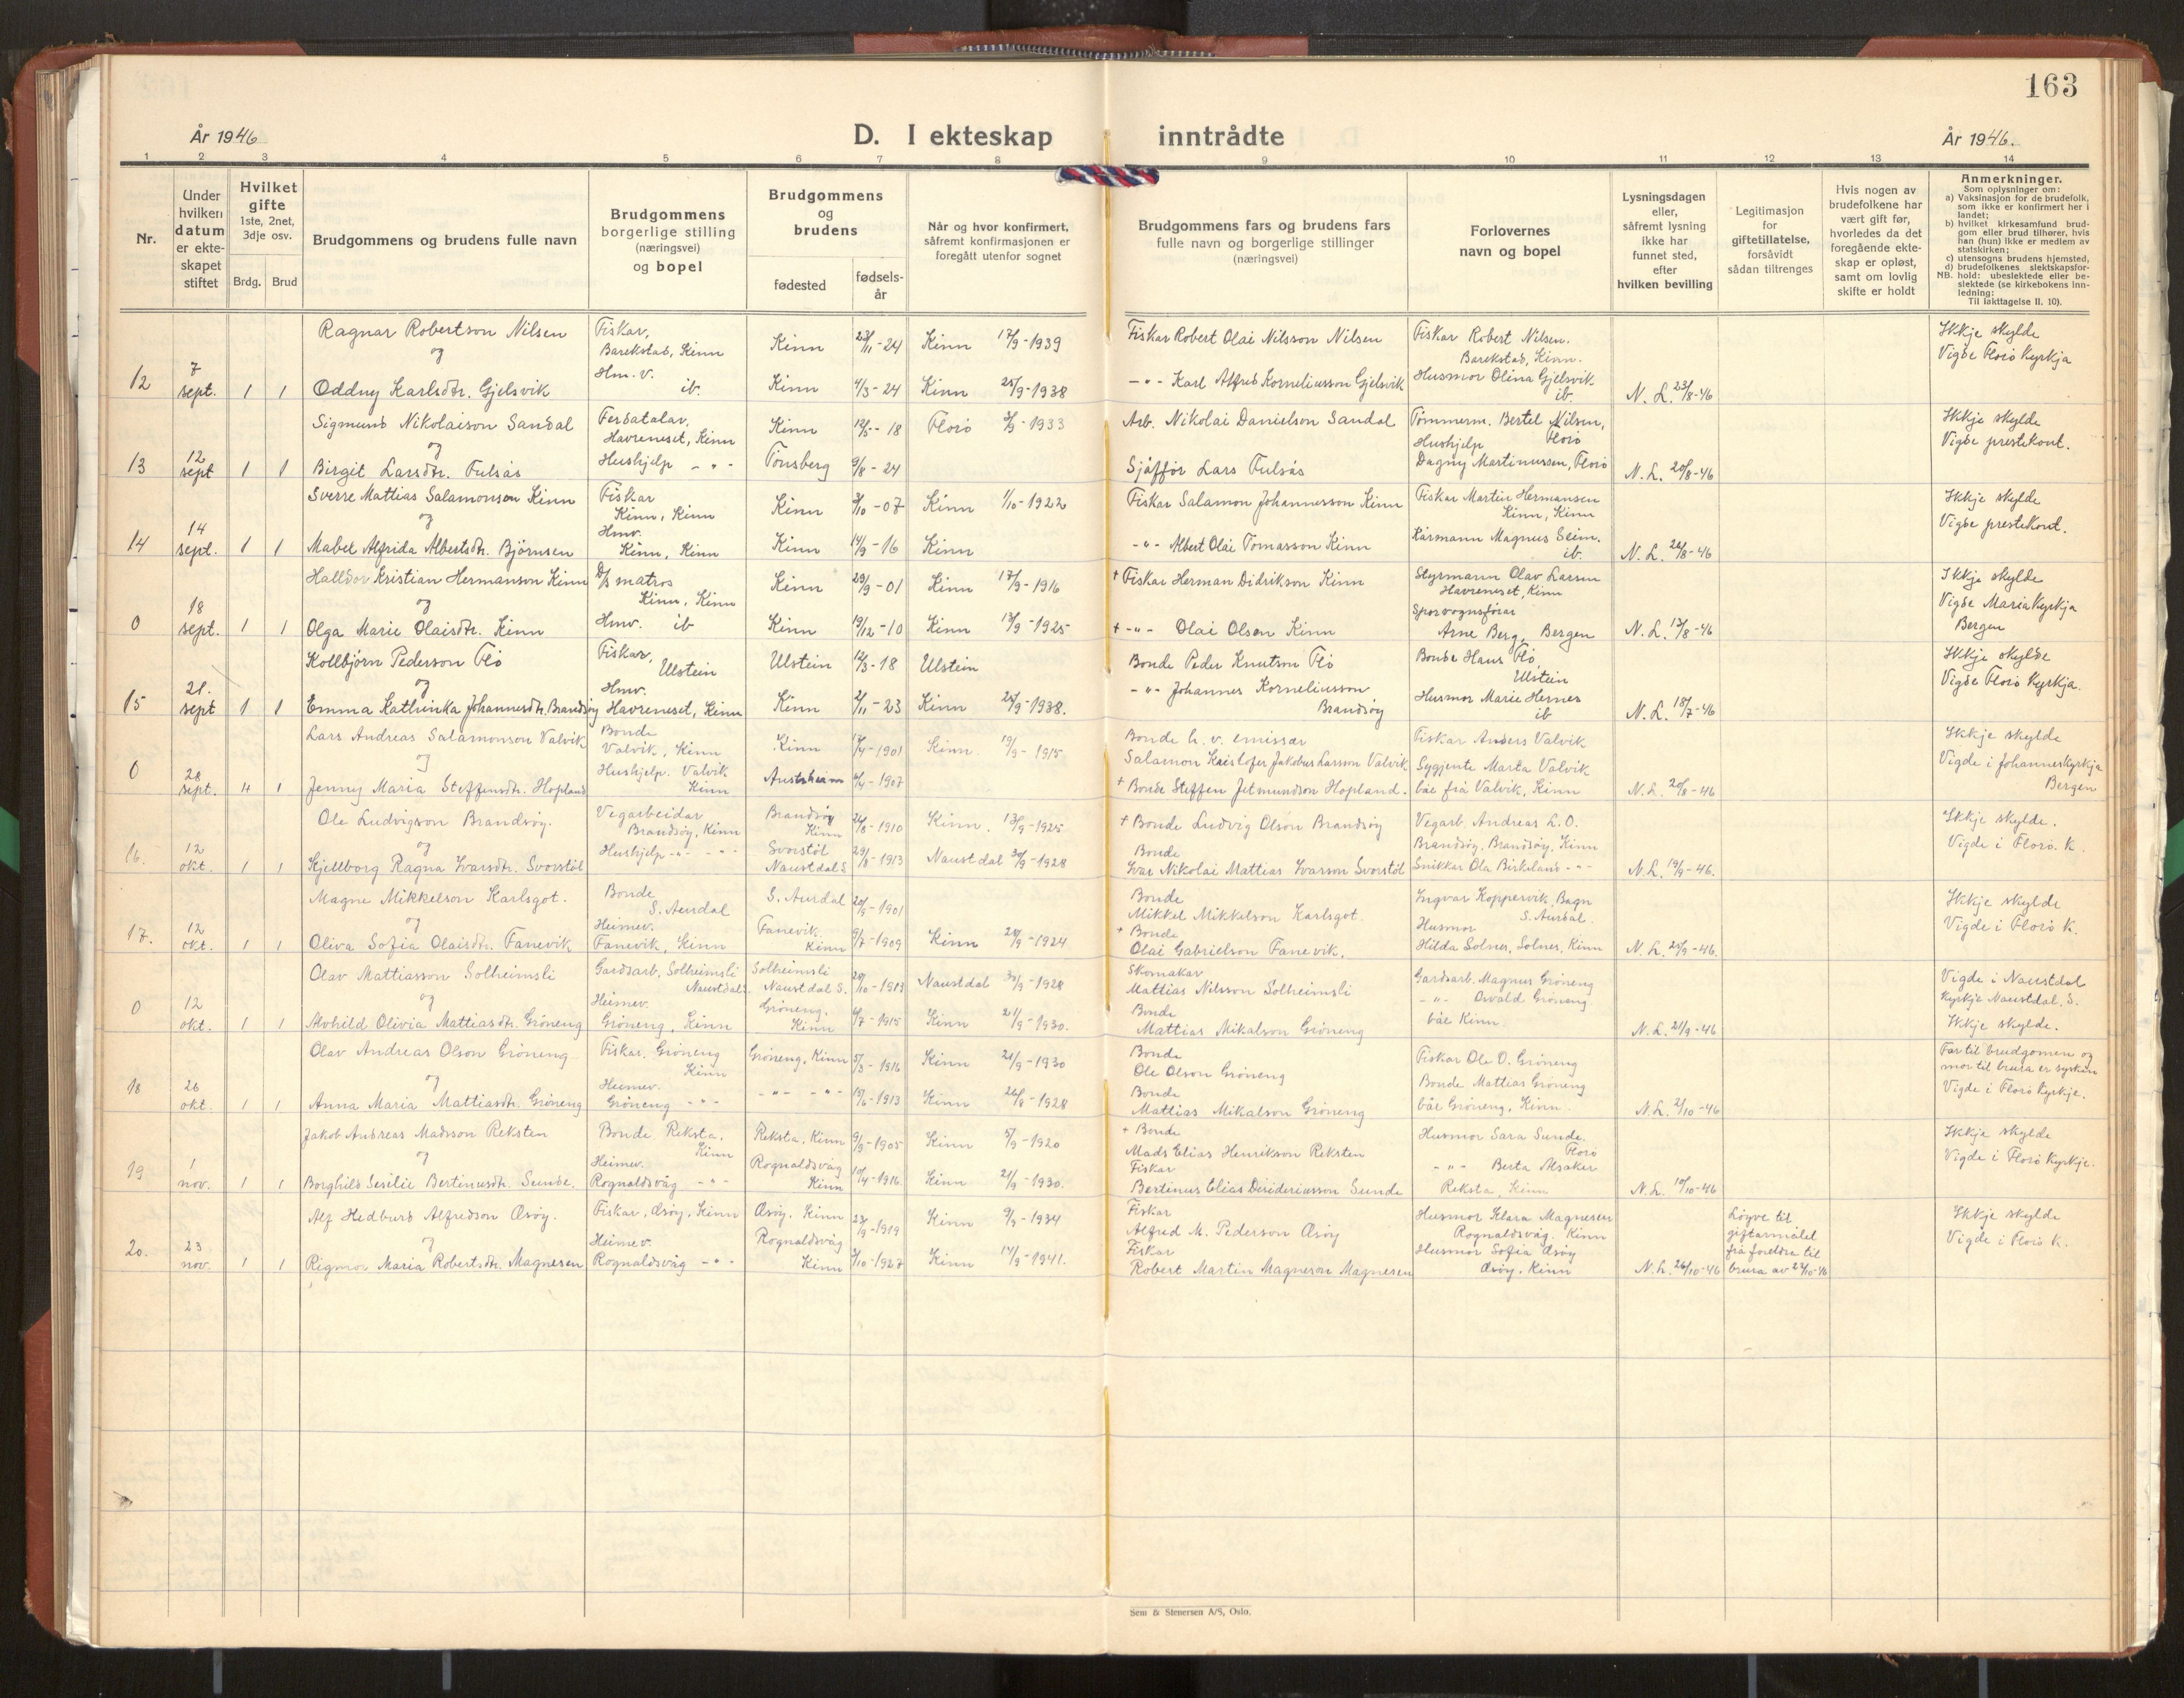 163
År 1946
D. I ekteskap inntrådte
År 1946.
1 2 3 4 5 6 7 8 9 10 11 12 13 14
Nr.
Under
hvilken
datum
er ekte-
skapet
stiftet
Hvilket
gifte
1ste, 2net,
3dje osv.
Brdg. Brud
Brudgommens og brudens fulle navn
Brudgommens
borgerlige stilling
(næringsvei)
og bopel
Brudgommens
og
brudens
fødested
fødsels-
år
Når og hvor konfirmert,
såfremt konfirmasjonen er
foregått utenfor sognet
Brudgommens fars og brudens fars
fulle navn og borgerlige stillinger
(næringsvei)
Forlovernes
navn og bopel
Lysningsdagen
eller,
såfremt lysning
ikke har
funnet sted,
efter
hvilken bevilling
Legitimasjon
for
giftetillatelse,
forsåvidt
sådan tiltrenges
Hvis nogen av
brudefolkene har
vært gift før,
hvorledes da det
foregående ekte-
skap er opløst,
samt om lovlig
skifte er holdt
Anmerkninger.
Som oplysninger om:
a) Vaksinasjon for de brudefolk,
som ikke er konfirmert her i
landet;
b) hvilket kirkesamfund brud-
gom eller brud tilhører, hvis
han (hun) ikke er medlem av
statskirken;
c) utensogns brudens hjemsted,
d) brudefolkenes slektskapsfor-
NB. hold: ubeslektede eller be-
slektede (se kirkebokens inn-
ledning:
Til iakttagelse II. 10).
Ragnar Robertson Nilsen Fiskar, Kinn 23/11-24 Kinn 17/9-1939 Fiskar Robert Olai Nilsson Nilsen Fiskar Robert Nilsen. Ikkje skylde
og Barekstad, Kinn Barekstad, Kinn. Vigde Florö Kyrkja
12 7 sept. 1 1 Oddny Karlsdtr. Gjelsvik Hm. v. ib. Kinn 4/3-24 Kinn 25/9-1938 -"- Karl Alfred Korneliusson Gjelsvik Husmor Olina Gjelsvik ib. N. L. 23/8-46
Sigmund Nikolaison Sandal Ferdatalar, Kinn 12/5-18 Florö 3/9-1933 Arb. Nikolai Danielson Sandal Tömmerm. Bertel Nilsen, Florö Ikkje skylde
og Havreneset, Kinn Vigde prestekont.
13 12 sept 1 1 Birgit Larsdtr. Fulsås Hushjelp -"- Tönsberg 9/8-24 Sjåfför Lars Fulsås Hushjelp Dagny Martinussen, Florö N. L. 20/8-46
Sverre Mattias Salamonsen Kinn Fiskar Kinn 3/10-07 Kinn 1/10-1922 Fiskar Salamon Johannesson Kinn Fiskar Martin Hermansen Ikkje skylde
og Kinn, Kinn Kinn, Kinn Vigde prestekont.
14 14 sept. 1 1 Mabel Alfrida Albertsdtr. Björnsen Hmv. Kinn, Kinn Kinn 14/9-16 Kinn -"- Albert Olai Tomasson Kinn Kårmann Magnus Seim. ib. N. L. 26/8-46
Halldor Kristian Hermanson Kinn D/s matros Kinn 29/9-01 Kinn 17/9-1916 + Fiskar Herman Didrikson Kinn Styrmann Olav Larsen Ikkje skylde
og Kinn, Kinn Havreneset, Kinn Vigde Mariakyrkja
0 18 sept. 1 1 Olga Marie Olaisdtr. Kinn Hmv. ib Kinn 19/12-10 Kinn 13/9-1925 + -"- Olai Olsen Kinn Sporvognsförar Arne Berg, Bergen N. L. 13/8-46 Bergen
Kolbjörn Pederson Flö Fiskar, Ulstein Ulstein 12/3-18 Ulstein Bonde Peder Knutson Flö Bonde Hans Flö, Ulstein Ikkje skylde
og Vigde Florö Kyrkja.
15 21. sept 1 1 Emma Kathrinka Johannesdtr. Brandsöy Hmv. Havreneset, Kinn Kinn 2/11-23 Kinn 25/9-1938. -"- Johannes Korneliusson Brandsöy Husmor Marie Hernes ib N. L. 18/7-46
Lars Andreas Salamonson Valvik Bonde Valvik, Kinn Kinn 17/4-1901 Kinn. 19/9-1915 Bonde h. v. emissær Fiskar Anders Valvik Ikkje skylde
og Salamon Kristofer Jakobus Larsson Valvik Sygjente Marta Valvik Vigde i Johanneskyrkja
0 28 sept. 4 1 Jenny Maria Steffensdtr. Hopland Hushjelp. Valvik Kinn Austrheim 4/4-1907 + Bonde Steffen Jetmundson Hopland. båe frå Valvik, Kinn N. L. 20/8-46 Bergen
Ole Ludvigson Brandsöy. Vegarbeidar Brandsöy, Kinn Brandsöy Kinn 24/8-1910 Kinn. 13/9-1925 + Bonde Ludvig Olson Brandsöy Vegarb. Andreas L. O. Ikkje skylde.
og Brandsöy, Brandsöy, Kinn Vigde i Florö. K.
16. 12 okt. 1 1 Kjellborg Ragna Ivarsdtr. Svorstöl Hushjelp -"- -"- Svorstöl Naustdal S 29/8-1913 Naustdal 30/9-1928 Bonde Ivar Nikolai Mattias Ivarson Svorstöl Snikkar Ola Birkeland -"- N. L. 19/9-46.
Magne Mikkelson Karlsgot. Bonde S. Aurdal S. Aurdal 20/9-1901 Bonde Mikkel Mikkelson Karlsgot. Ingvar Koppervik, Bagn S. Aurdal. Ikkje skylde
og Vigde i Florö K.
17. 12 okt. 1 1 Oliva Sofia Olaisdtr. Fanevik Heimev. Fanevik, Kinn Fanevik. Kinn 9/7-1909 Kinn 28/9-1924 + Bonde Olai Gabrielson Fanevik. Husmor Hilda Solnes, Solnes, Kinn N. L. 25/9-46.
Olav Mattiasson Solheimsli Gardsarb. Solheimsli Naustdal. Solheimsli Naustdal S. 28/10-1913 Naustdal 30/9-1928 Skomakar Mattias Nilsson Solheimsli Gardsarb. Magnus Gröneng Vigde i Naustdal
og -"- Osvald Gröneng. kyrkje Naustdal. S.
0 12 okt. 1 1 Alvhild Olivia Mattiasdtr. Gröneng Heimev. Gröneng, Kinn Gröneng. Kinn 4/7-1915 Kinn 21/9-1930. Bonde Mattias Mikalson Gröneng båe Kinn. N. L. 21/9-46 Ikkje skylde.
Olav Andreas Olson Gröneng Fiskar. Gröneng Kinn Gröneng, Kinn 5/3-1916 Kinn 21/9-1930 Bonde Ole Olson Gröneng Fiskar Ole O. Gröneng Far til brudgomen og
og Bonde Mattias Gröneng mor til brura er syskin
18 26 okt. 1 1 Anna Maria Mattiasdtr. Gröneng Heimev. Gröneng -"- -"- -"- 15/6-1913 Kinn 26/8-1928 Bonde Mattias Mikalson Gröneng båe Gröneng, Kinn. N. L. 2/10-46 Vigde i Florö Kyrkje.
Jakob Andreas Madsson Reksten Bonde Reksta. Kinn Reksta, Kinn 9/9-1905 Kinn 5/9-1920 + Bonde Mads Elias Henrikson Reksten Husmor Sara Sunde. Florö Ikkje skylde
og Vigde i Florö Kyrkje.
19 1 nov. 1 1 Borghild Sesilie Bertinusdtr. Sunde. Heimev. Rognaldsvåg -"- Rognaldsvåg Kinn 10/4-1916 Kinn 21/9-1930. Fiskar Bertinus Elias Desideriusson Sunde -"- Berta Alsaker Reksta, Kinn N. L. 10/10-46
Alf Hedburd Alfredson Osöy. Fiskar, Osöy, Kinn Osöy. Kinn 23/9-1919 Kinn 9/9-1934 Fiskar Alfred M. Pederson Osöy Husmor Klara Magnesen Rognaldsvåg. Kinn Löyve til Ikkje skylde
og giftarmålet Vigde i Florö K.
20. 23 nov. 1 1 Rigmor Maria Robertsdtr. Magnesen Heimev. Rognaldsvåg -"- Rognaldsvåg Kinn 3/10-1927 Kinn 14/9-1941. Fiskar Robert Martin Magneson Magnesen Husmor Sofia Osöy Osöy. Kinn N. L. 26/10-46 frå foreldra til
brura av 22/10-46
Sem & Stenersen A/S, Oslo.